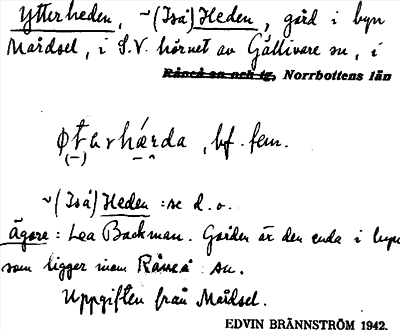 Ytterheden, ~ (Iså) Heden, gård i byn
Mårdsel, i S.V. hörnet av Gällivare sn, i
Råneå sn och tg, Norrbottens län
bf. fem.
~ (Iså) Heden : se d. o.
Ägare : Lea Backman. Gården är den enda i byn
som ligger inom Råneå sn.
Uppgiften från Mårdsel.
EDVIN BRÄNNSTRÖM 1942.